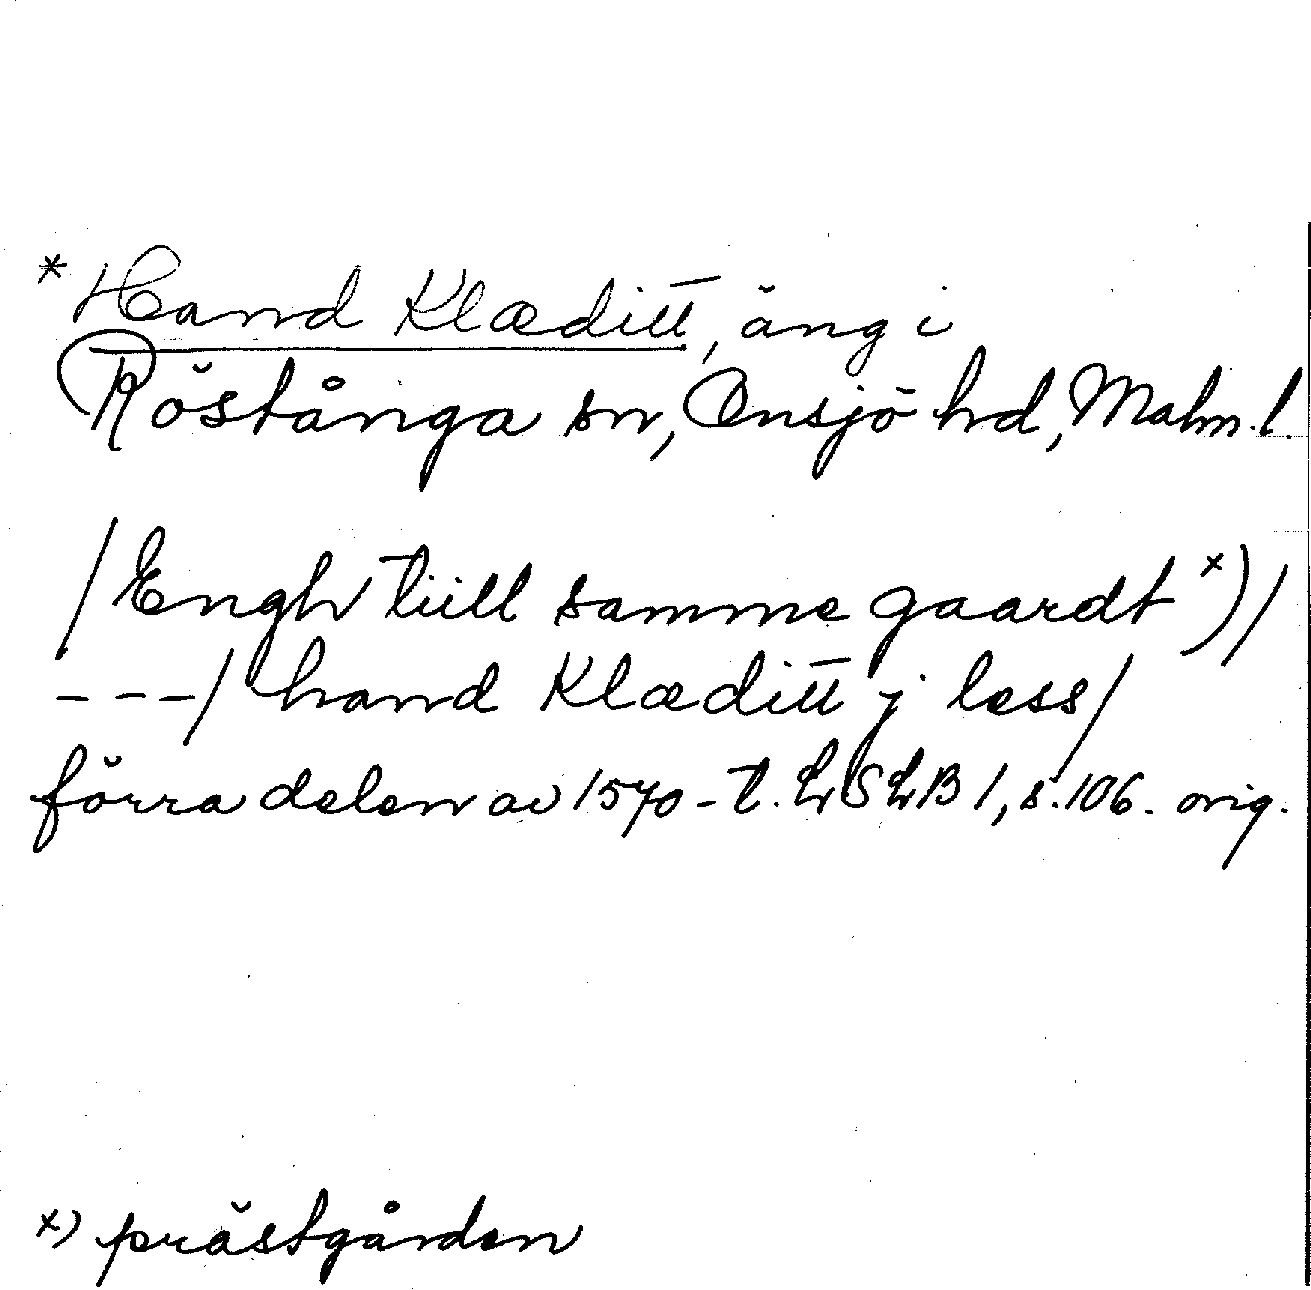 *Hand Klæditt, äng i
Röstånga sn, Onsjö hd, Malm. l.
/Engh tiill samme gaardt x)/
---/ hand Klæditt j less/
förra delen av 1570-t. LSLB 1, s. 106. orig.
x) prästgården